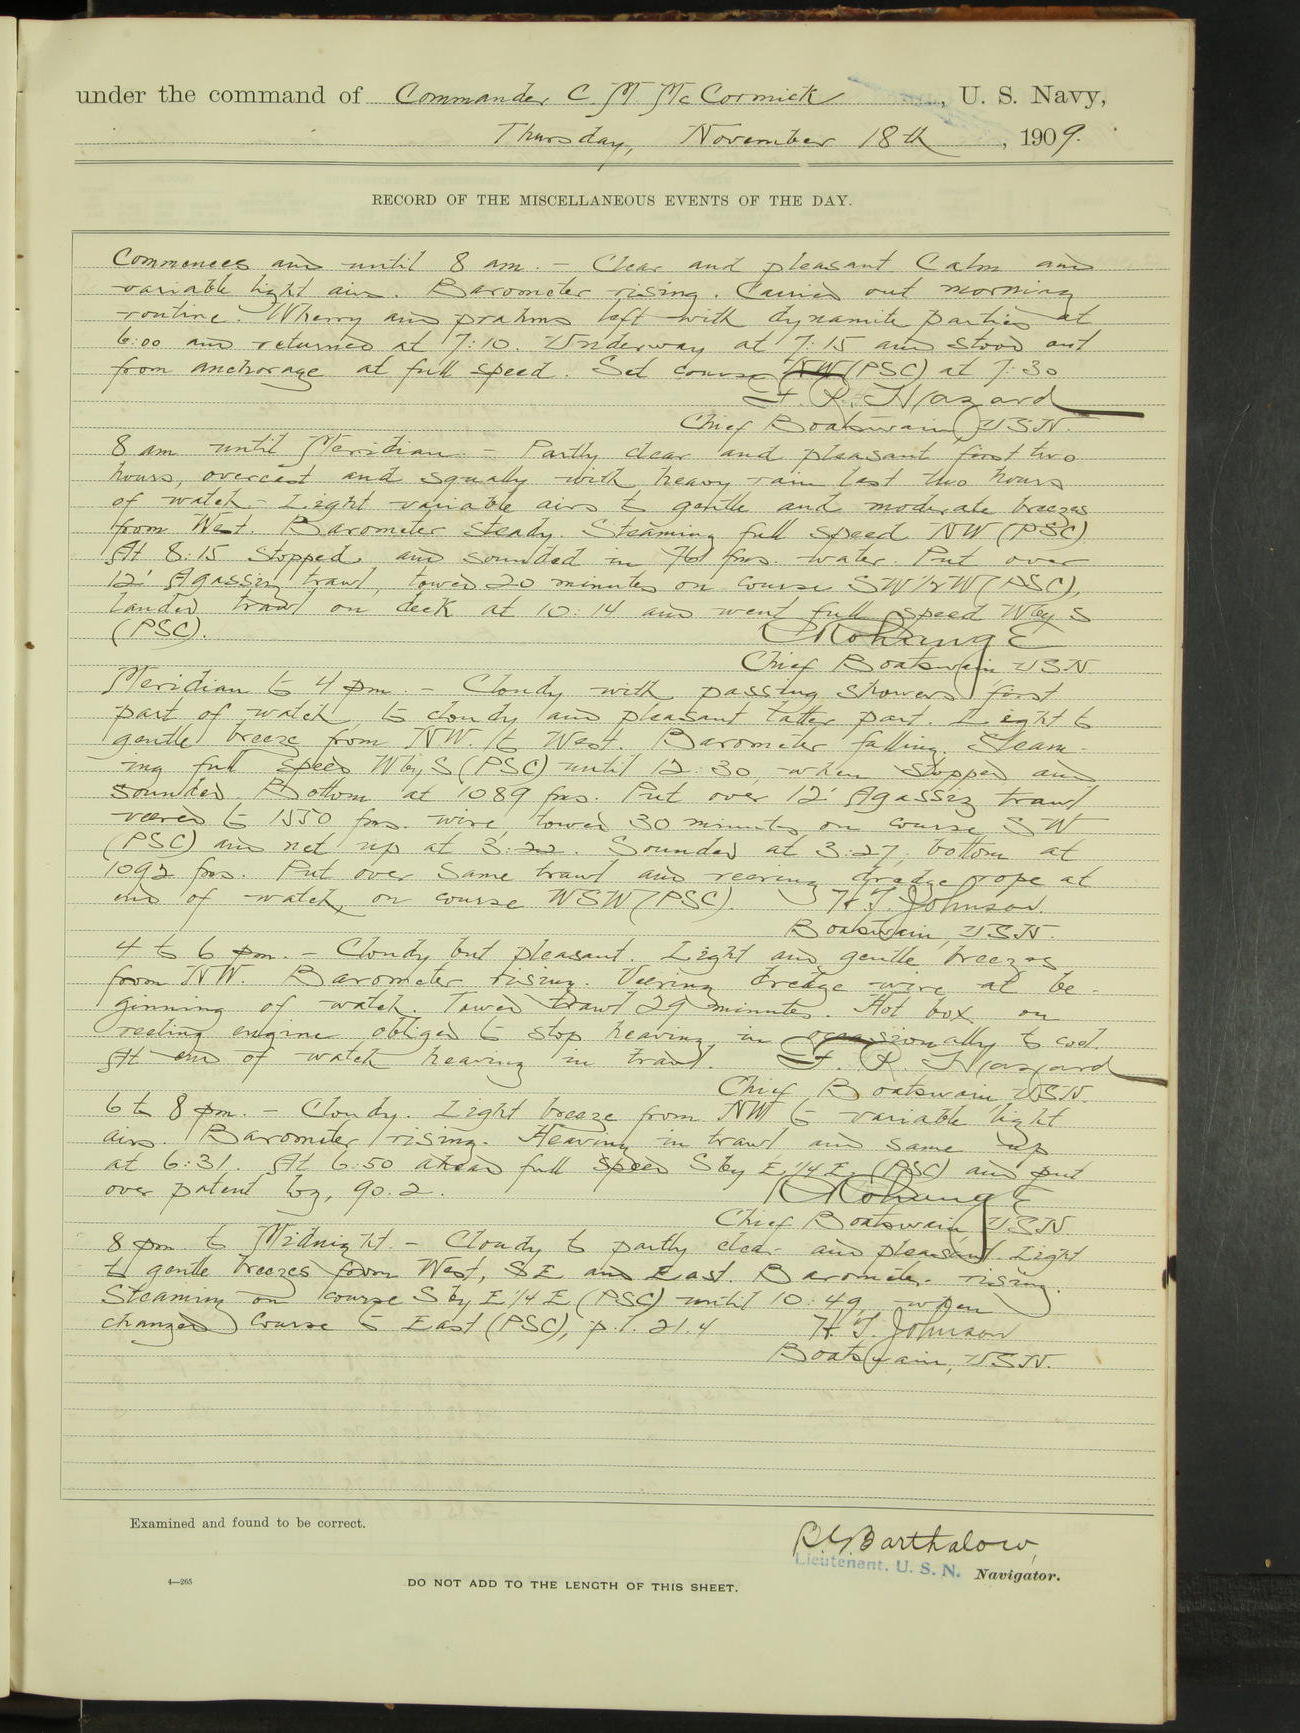 under the command of Commander C. M McCormick, U. S. Navy,
Thursday, November 18th, 1909.
RECORD OF THE MISCELLANEOUS EVENTS OF THE DAY.
Commences and until 8 am. - Clear and pleasant Calm and
variable light airs. Barometer rising. Carried out morning
routine. Wherry and prahms left with dynamite parties at
6:00 and returned at 7:10. Underway at 7:15 and stood out
from anchorage at full speed. Set course NW (PSC) at 7:30
F. R. Hazard
Chief Boatswain, USN.
8 am until Meridian - Partly clear and pleasant first two
hours, overcast and squally with heavy rain last two hours
of watch - Light variable airs to gentle and moderate breezes
from West. Barometer steady. Steaming full speed NW (PSC)
At 8:15 stopped and sounded in 761 fms. water. Put over
12' Agassiz trawl, towed 20 minutes on course SW½W (PSC),
landed trawl on deck at 10:14 and went full speed W by S
(PSC).
Chief Boatswain USN.
Meridian to 4 pm. - Cloudy with passing showers first
part of watch to cloudy and pleasant latter part. Light to
gentle breeze from NW. to West. Barometer falling. Steam-
ing full speed W by S (PSC) until 12:30, when stopped and
sounded. Bottom at 1089 fms. Put over 12' Agassiz trawl
veered to 1550 fms. wire, towed 30 minutes on course SW
(PSC) and net up at 3:22. Sounded at 3:27, bottom at
1092 fms. Put over same trawl and veering dredge rope at
end of watch, on course WSW (PSC). H. T. Johnson.
Boatswain, USN.
4 to 6 pm. - Cloudy but pleasant. Light and gentle breezes
from NW. Barometer rising. Veering dredge wire at be-
ginning of watch. Towed trawl 29 minutes. Hot box on
reeling engine obliged to stop heaving in occasionally to cool.
At end of watch heaving in trawl. F. R. Hazard
Chief Boatswain USN.
6 to 8 pm. - Cloudy. Light breeze from NW to variable light
airs. Barometer rising. Heaving in trawl and same up
at 6:31. At 6:50 ahead full speed S by E ¼ E (PSC) and put
over patent log, 90.2.
Chief Boatswain, USN
8 pm to Midnight - Cloudy to partly clear and pleasant. Light
to gentle breezes from West, SE and East. Barometer rising.
Steaming on course S by E ¼ E (PSC) until 10:49, when
changed course to East (PSC), p.l. 21.4 H. T. Johnson
Boatswain, USN.
Examined and found to be correct.
Barthalow,
Lieutenant, U. S. N. Navigator.
4—265
DO NOT ADD TO THE LENGTH OF THIS SHEET.